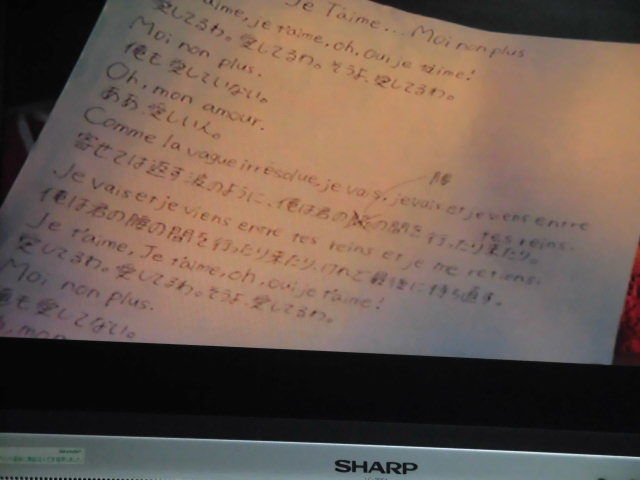 Je T'aime... Moi non plus
t'aime, je t'aime, oh, oui je t'aime!
愛してるわ。愛してるわ。そうよ、愛してるわ。
Moi non plus.
俺も愛していない。
Oh, mon amour.
ああ、愛しい人。
Comme la vague irrésolue, je vais, je vais et je viens entre
tes reins.
腰
寄せては返す波のように、俺は君の の間を行ったり来たり。
Je vais et je viens entre tes reins et je me retiens.
俺は君の腰の間を行ったり来たり、けれど最後に持ち返す。
Je t'aime, Je t'aime, oh, oui je t'aime!
愛してるわ。愛してるわ。そうよ、愛してるわ。
Moi non plus.
も愛してない。
mon
SHARP